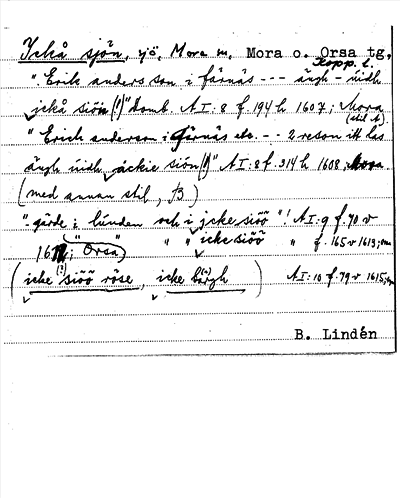 Ickå sjön, sjö, Mora sn, Mora o. Orsa tg,
Kopp. l.
"Erik anders son i färnäs --- ängh - uidh
jckå siön (!)" domb. A I: 8 f. 194 h 1607; Mora
(stil A)
"Erich anderson i Färnäs etc. -- 2 reson itt las
ängh uidh jäckie siön (!)" A I: 8 f. 314 h 1608, Mora
(med annan stil, B)
"-gärde i lunden och i jcke siöö"! A I: 9 f. 70 v
1612; Orsa
" " icke siöö " f. 165 v 1613; "
(icke (!) siöö röse, icke bärgh) A I: 10 f. 79 v 1615;
B. Lindén